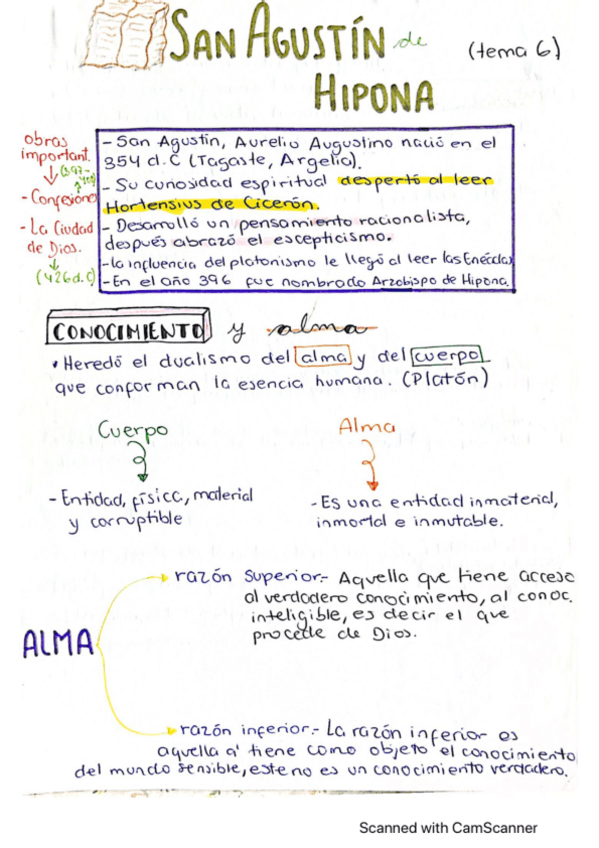 SAN AGUSTÍN de
(tema 6)
HIPONA
obras
important.
- Confesione
- La Ciudad
de Dios.
(426d.C)
- San Agustin, Aurelio Augustino nació en el
354 d.C (Tagaste, Argelia).
- Su curiosidad espiritual despertó al leer
Hortensius de Cicerón.
- Desarrolló un pensamiento racionalista,
después abrazó el escepticismo.
- la influencia del platonismo le llegó al leer las Enéadas
- En el año 396 fue nombrado Arzobispo de Hipona.
CONOCIMIENTO y alma
• Heredó el dualismo del alma y del cuerpo
que conforman la esencia humana. (Platón)
Cuerpo
- Entidad, física, material
y corruptible
Alma
- Es una entidad inmaterial,
inmortal e inmutable.
ALMA
razón superior.- Aquella que tiene acceso
al verdadero conocimiento, al conoc.
inteligible, es decir el que
procede de Dios.
razón inferior.- La razón inferior es
aquella q' tiene como objeto el conocimiento
del mundo sensible, este no es un conocimiento verdadero.
Scanned with CamScanner